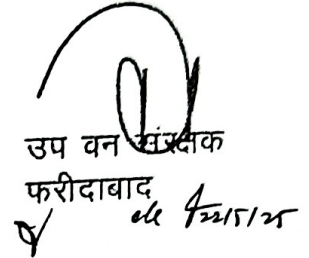 उप वन संरक्षक
फरीदाबाद
22/5/25